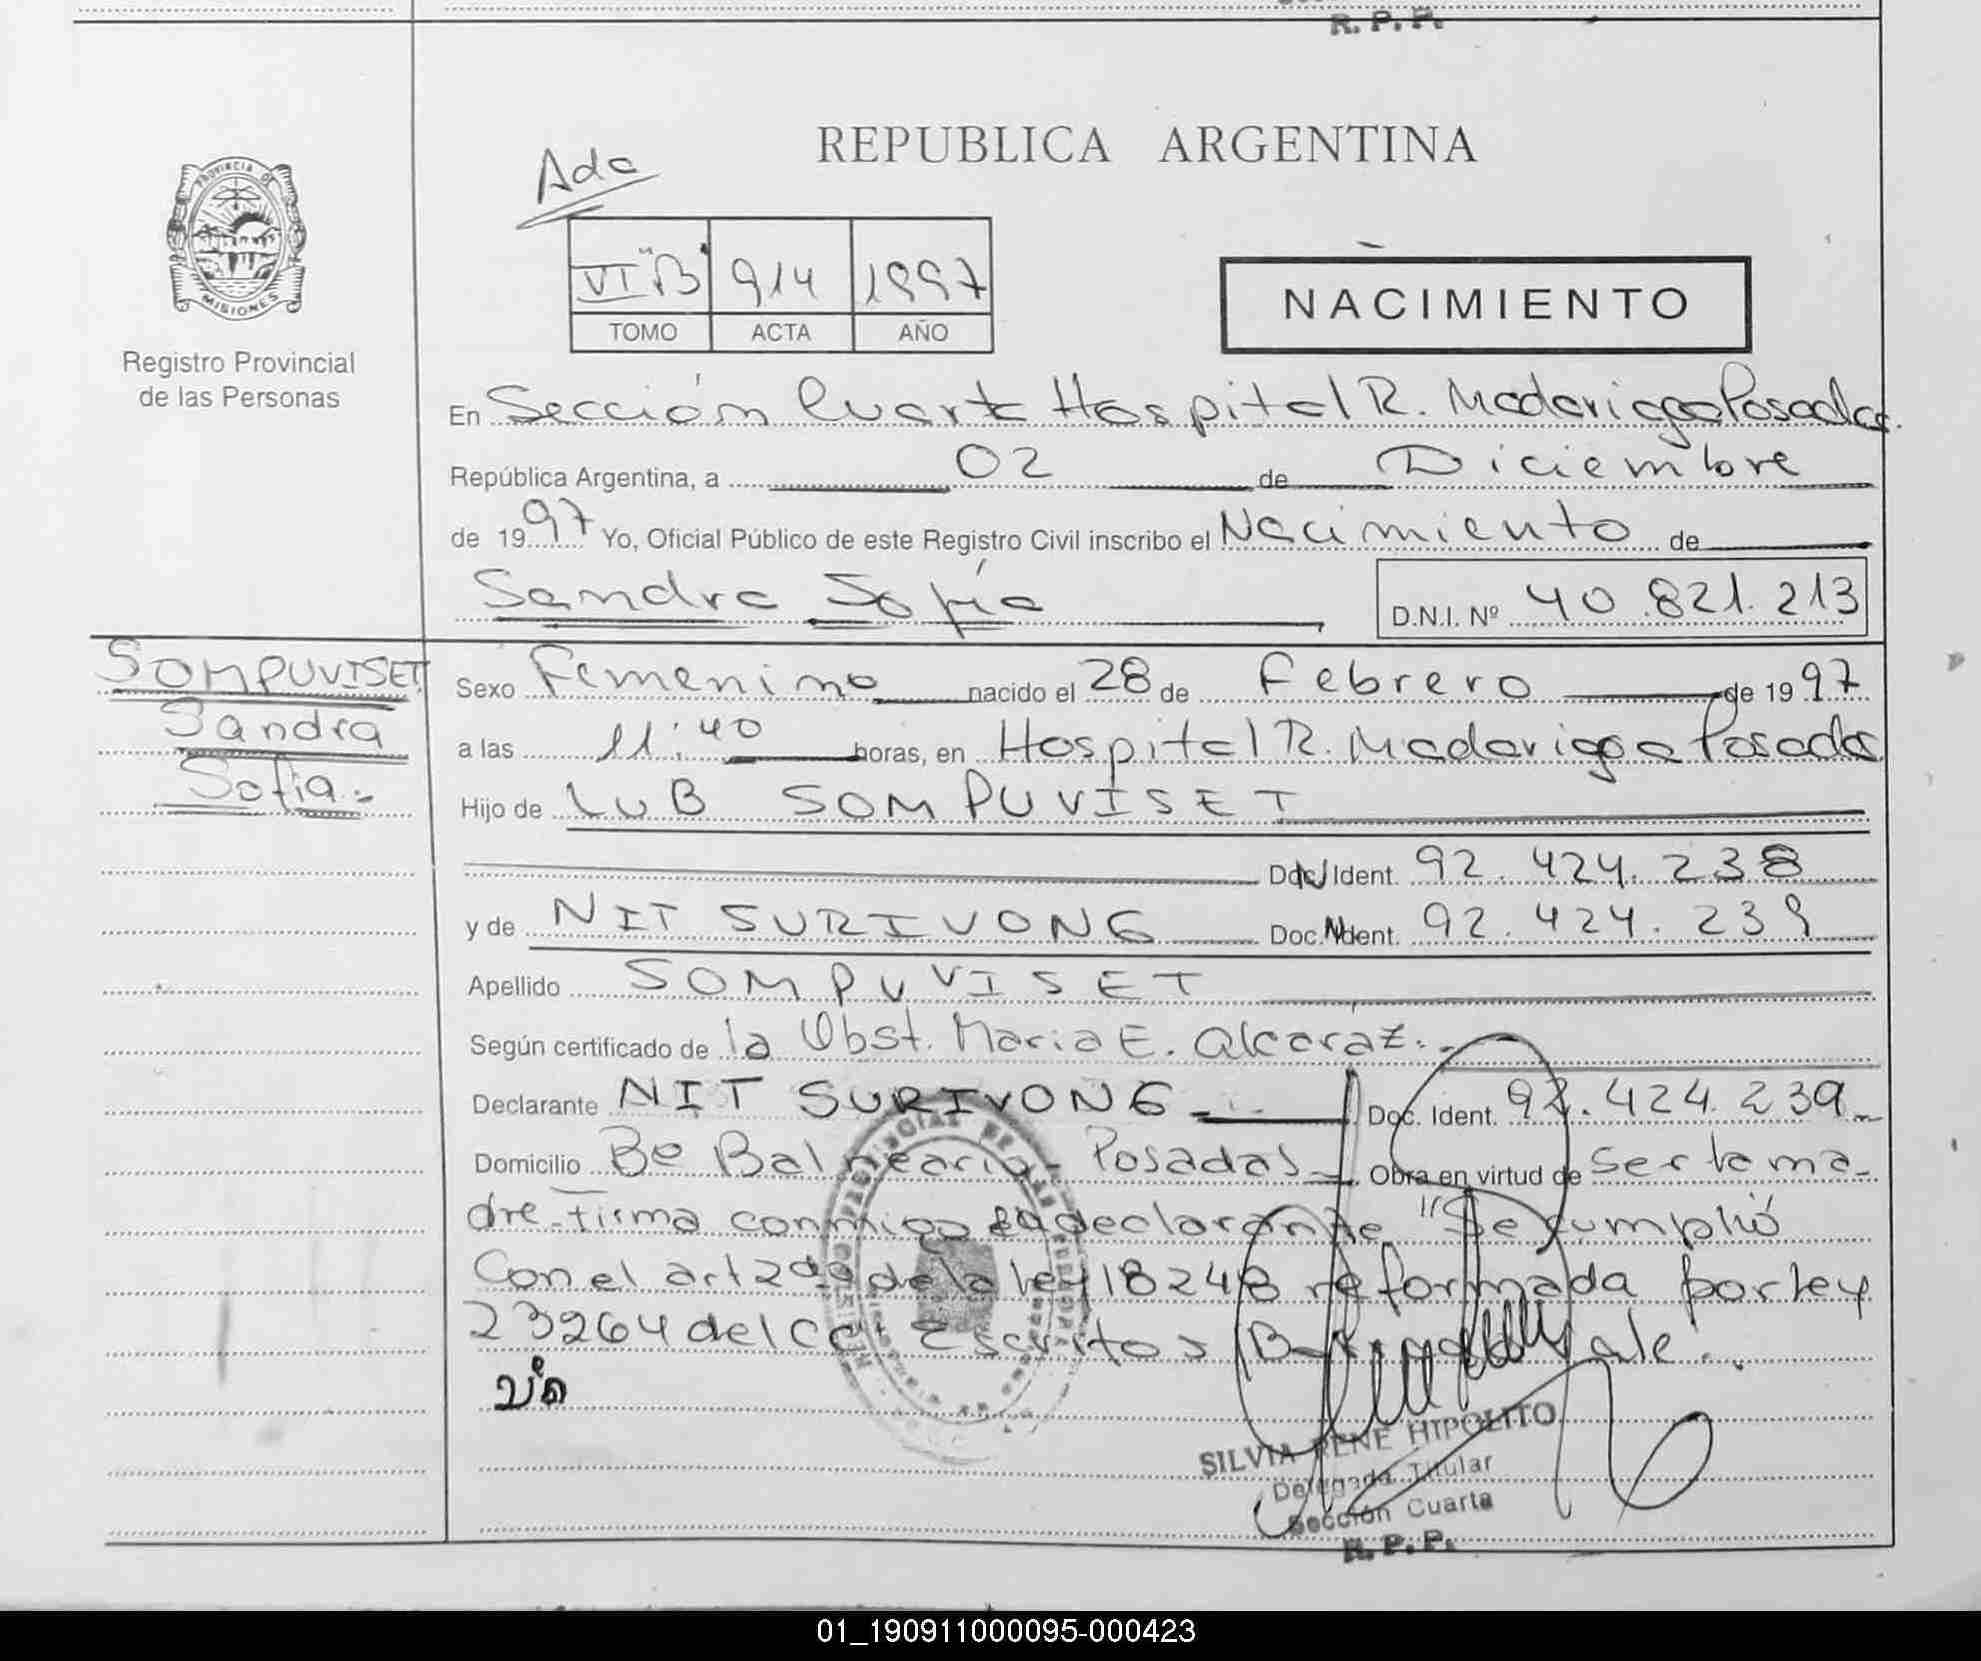 R. P. P.
REPUBLICA ARGENTINA
Ada
PROVINCIA DE
MISIONES
VI "B" 914 1997
TOMO ACTA AÑO
NACIMIENTO
Registro Provincial
de las Personas
En Sección Cuarta Hospital R. Madariaga Posadas.
República Argentina, a 02 de Diciembre
de 1997 Yo, Oficial Público de este Registro Civil inscribo el Nacimiento de
Sandra Sofía D.N.I. Nº 40.821.213
SOMPUVISET
Sandra
Sofia.-
Sexo Femenino nacido el 28 de Febrero de 1997
a las 11:40 horas, en Hospital R. Madariaga Posadas
Hijo de LUB SOMPUVISET
Doc. Ident. 92.424.238
y de NIT SURIVONG Doc. Ident. 92.424.239
Apellido SOMPUVISET
Según certificado de la Obst. Maria E. Alcaraz.-
Declarante NIT SURIVONG Doc. Ident. 92.424.239
Domicilio Bº Balneario Posadas Obra en virtud de ser la ma-
dre Firma conmigo la declarante "Se cumplió
Con el art 2do de la ley 18248 reformada por ley
23264 del CC" Escritos B vale.
ນິດ
SILVIA RENE HIPOLITO
Delegada Titular
Sección Cuarta
R. P. P.
01_190911000095-000423